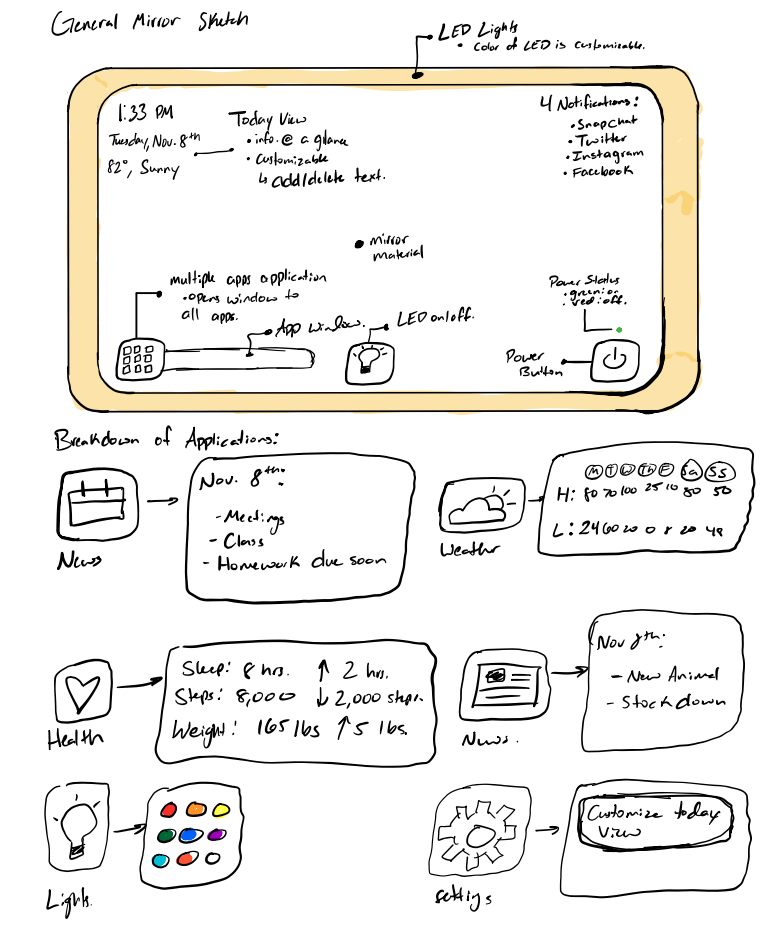 General Mirror Sketch
LED Lights
• Color of LED is customizable.
1:33 PM
Tuesday, Nov. 8th
82°, Sunny
Today View
• info. @ a glance
• customizable
↳ add/delete text.
4 Notifications:
• Snapchat
• Twitter
• Instagram
• Facebook
• mirror
material
multiple apps application
• opens window to
all apps.
App window.
LED on/off.
Power Status
• green: on
• red: off.
Power
Button
Breakdown of Applications:
News
Nov. 8th:
- Meetings
- Class
- Homework due soon
Weather
M T W Th F Sa SS
H: 80 70 100 25 10 80 50
L: 24 60 20 0 8 20 48
Health
Sleep: 8 hrs. ↑ 2 hrs.
Steps: 8,000 ↓ 2,000 steps.
Weight: 165 lbs ↑ 5 lbs.
News.
Nov 8th:
- New Animal
- Stock down
Lights.
settings
Customize today
View